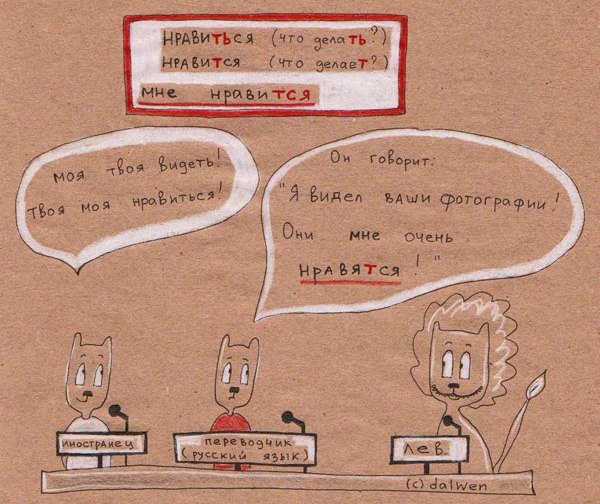 НРАВИТЬСЯ (что делаТЬ?)
НРАВИТСЯ (что делаеТ?)
мне нравиТСЯ
моя твоя видеть!
твоя моя нравиться!
Он говорит:
"Я видел ваши фотографии!
Они мне очень
нравятся!"
иностранец
переводчик
(русский язык)
Лев
(c) dalwen